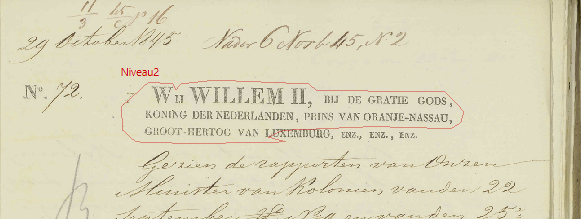 11/3 15/6 № 16
29 October 1845 Nader 6 Novb 45, N 2
Niveau2
No. 72.
WIJ WILLEM II, BIJ DE GRATIE GODS,
KONING DER NEDERLANDEN, PRINS VAN ORANJE-NASSAU,
GROOT-HERTOG VAN LUXEMBURG, ENZ., ENZ., ENZ.
Gezien de rapporten van Onzen
Minister van Kolonien, vanden 22
September en vanden 25